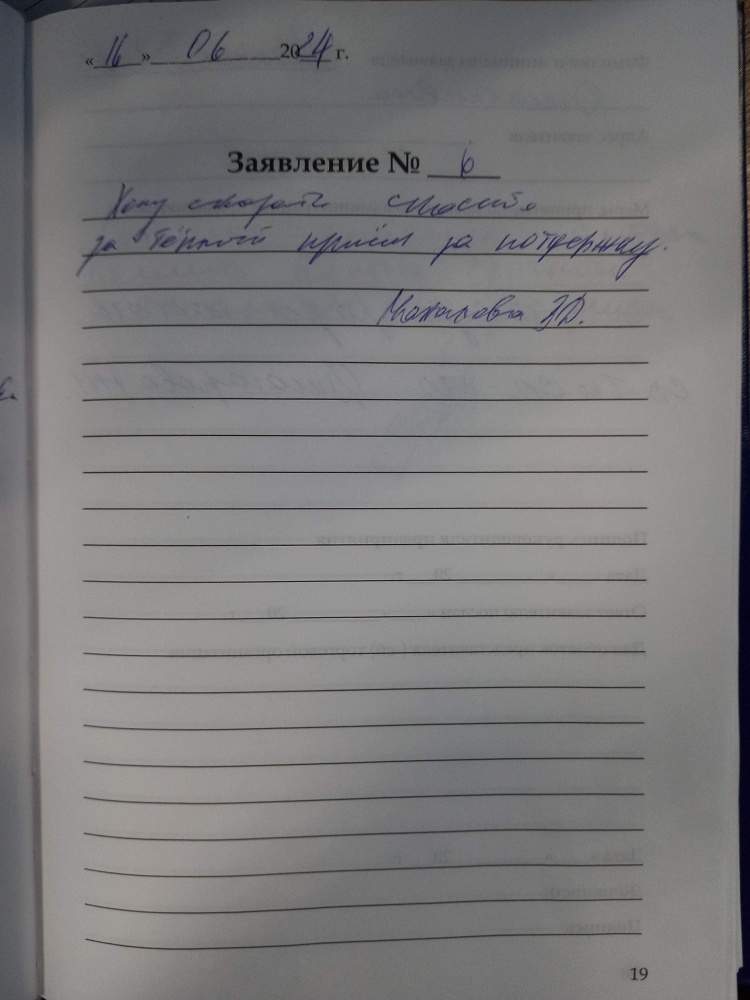 « 16 » 06 2024 г.
Заявление № 6
Хочу сказать спасибо
за тёплый приём за потдержку.
З.Р.
19